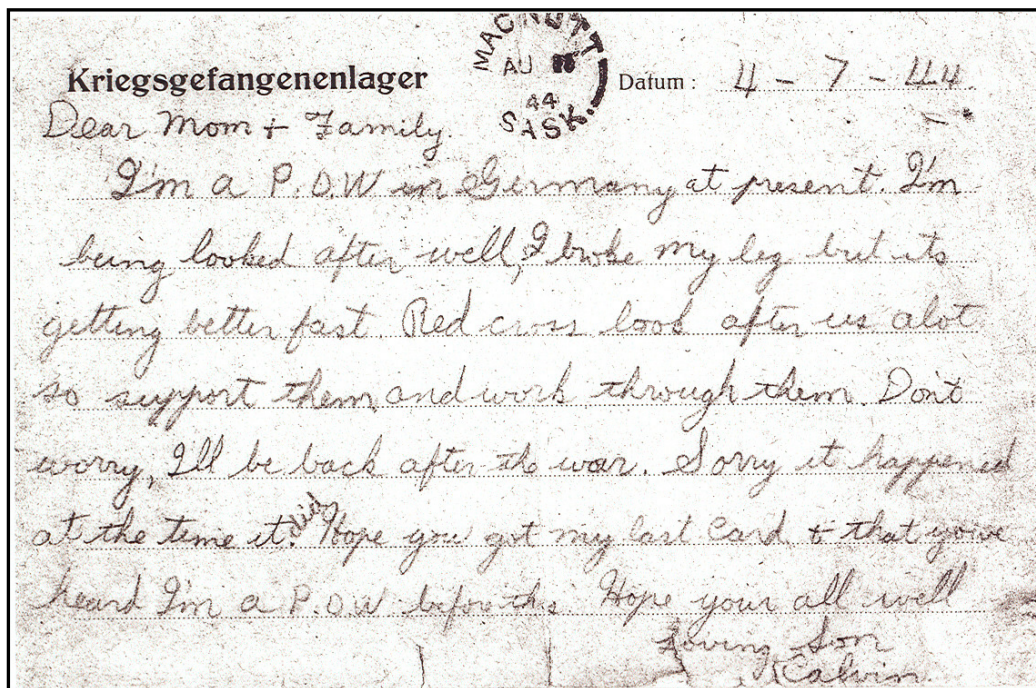 MACNUTT
AU
44
SASK.
Kriegsgefangenenlager Datum: 4-7-44
Dear Mom + Family.
I'm a P.O.W in Germany at present. I'm
being looked after well, I broke my leg but its
getting better fast. Red cross look after us alot
so support them, and work through them. Don't
worry, I'll be back after the war. Sorry it happened
at the time it did. Hope you got my last card + that you've
heard I'm a P.O.W before this. Hope your all well
Loving Son
Calvin.